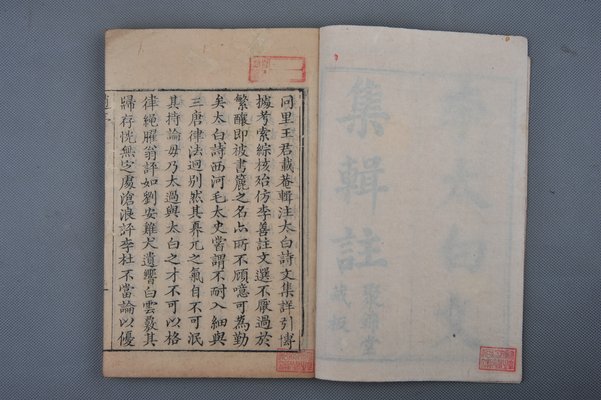 李太白文
集輯註
聚錦堂
藏板
同里王君載菴輯注太白詩文集詳引博
據考索綜核殆仿李善註文選不厭過於
繁釀即被書簏之名亦所不顧噫可為勤
矣太白詩西河毛太史嘗謂不耐入細與
三唐律法迥別然其元之氣自不可泯
其持論毋乃太過與太白之才不可以格
律繩臞翁評如劉安雞犬遺響白雲覈其
歸存恍無定處滄浪評李杜不當論以優